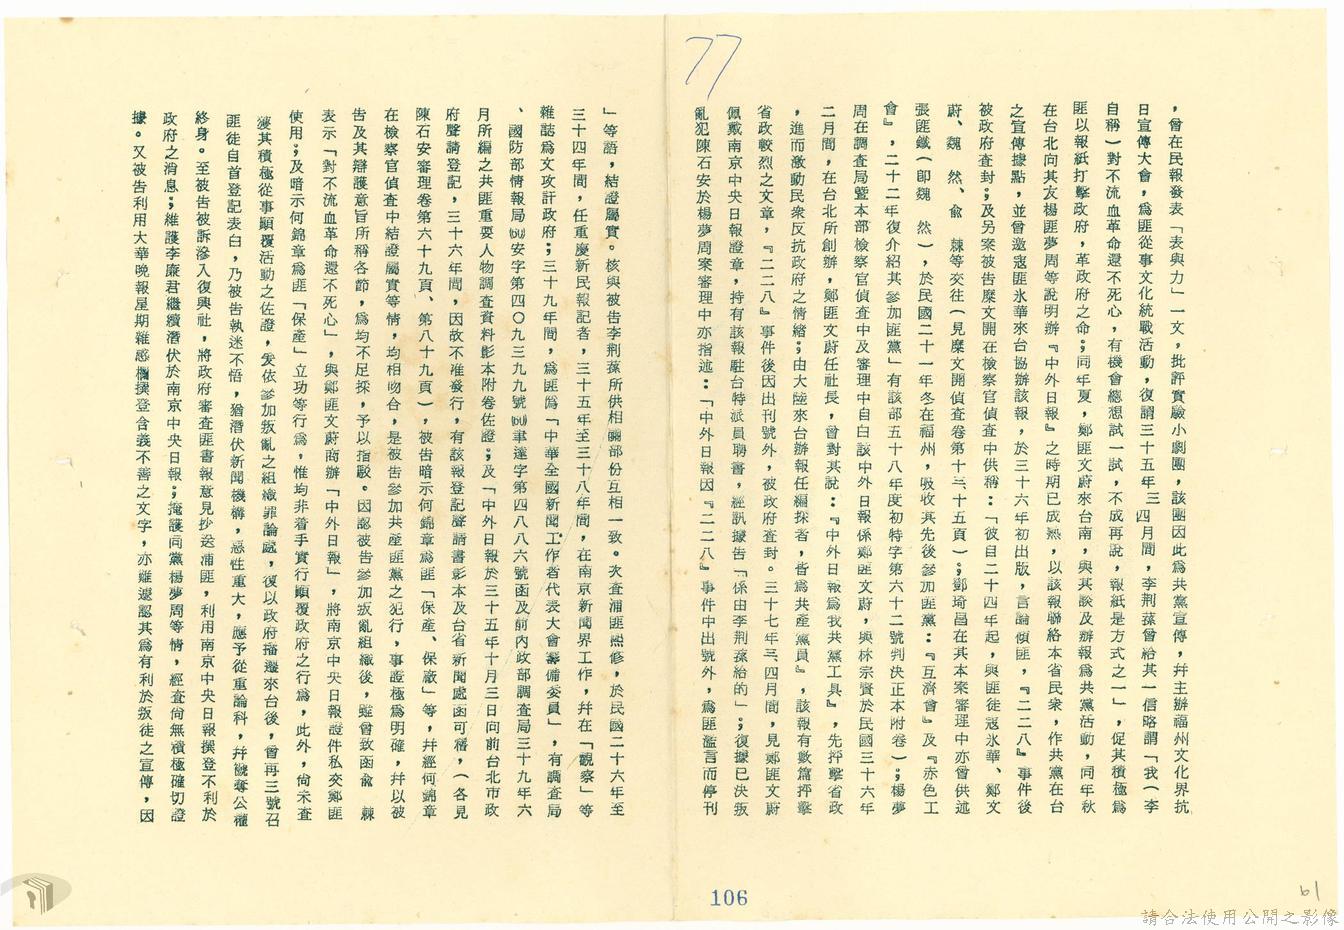 77
，曾在民報發表「表與力」一文，批評實驗小劇團，該團因此爲共黨宣傳，幷主辦福州文化界抗
日宣傳大會，爲匪從事文化統戰活動，復謂三十五年三　四月間，李荆蓀曾給其一信略謂「我（李
自稱）對不流血革命還不死心，有機會總想試一試，不成再說，報紙是方式之一」，促其積極爲
匪以報紙打擊政府，革政府之命；同年夏，鄭匪文蔚來台南，與其談及辦報爲共黨活動，同年秋
在台北向其友楊匪夢周等說明辦『中外日報』之時期已成熟，以該報聯絡本省民衆，作共黨在台
之宣傳據點，並曾邀寇匪氷華來台協辦該報，於三十六年初出版，言論傾匪，『二二八』事件後
被政府查封；及另案被告糜文開在檢察官偵查中供稱：「彼自二十四年起，與匪徒寇氷華、鄭文
蔚、魏　然、俞　棘等交往（見糜文開偵查卷第十三十五頁）；鄧琦昌在其本案審理中亦曾供述
張匪鐵（卽魏　然），於民國二十一年冬在福州，吸收其先後參加匪黨：『互濟會』及『赤色工
會』，二十二年復介紹其參加匪黨」有該部五十八年度初特字第六十二號判決正本附卷）；楊夢
周在調查局暨本部檢察官偵查中及審理中自白該中外日報係鄭匪文蔚，與林宗賢於民國三十六年
二月間，在台北所創辦，鄭匪文蔚任社長，曾對其說：『中外日報爲我共黨工具』，先抨擊省政
，進而激動民衆反抗政府之情緒；由大陸來台辦報任編採者，皆爲共產黨員』，該報有數篇抨擊
省政較烈之文章，『二二八』事件後因出刊號外，被政府查封。三十七年三、四月間，見鄭匪文蔚
佩戴南京中央日報證章，持有該報駐台特派員聘書，經訊據吿「係由李荆蓀給的」；復據已決叛
亂犯陳石安於楊夢周案審理中亦指述：「中外日報因『二二八』事件中出號外，爲匪濫言而停刊
」等語，結證屬實。核與被告李荆蓀所供相關部份互相一致。次查浦匪熙修，於民國二十六年至
三十四年間，任重慶新民報記者，三十五年至三十八年間，在南京新聞界工作，幷在「觀察」等
雜誌爲文攻訐政府；三十九年間，爲匪僞「中華全國新聞工作者代表大會籌備委員」，有調查局
、國防部情報局(60)安字第四〇九三九九號(60)聿達字第四八八六號函及前內政部調查局三十九年六
月所編之共匪重要人物調查資料影本附卷佐證；及「中外日報於三十五年十月三日向前台北市政
府聲請登記，三十六年間，因故不准發行，有該報登記聲請書影本及台省新聞處函可稽，（各見
陳石安審理卷第六十九頁、第八十九頁），被告暗示何錦章爲匪「保產、保廠」等，幷經何錦章
在檢察官偵查中結證屬實等情，均相吻合，是被告參加共產匪黨之犯行，事證極爲明確，幷以被
告及其辯護意旨所稱各節，爲均不足採，予以指駁。因認被告參加叛亂組織後，雖曾致函俞　棘
表示「對不流血革命還不死心」，與鄭匪文蔚商辦「中外日報」，將南京中央日報證件私交鄭匪
使用；及暗示何錦章爲匪「保產」立功等行爲，惟均非着手實行顚覆政府之行爲，此外，尙未查
獲其積極從事顚覆活動之佐證，爰依參加叛亂之組織罪論處，復以政府播遷來台後，曾再三號召
匪徒自首登記表白，乃被告執迷不悟，猶潛伏新聞機構，惡性重大，應予從重論科，幷褫奪公權
終身。至被告被訴滲入復興社，將政府審查匪書報意見抄送浦匪，利用南京中央日報撰登不利於
政府之消息；維護李廉君繼續潛伏於南京中央日報；掩護同黨楊夢周等情，經查尙無積極確切證
據。又被告利用大華晚報星期雜感欄撰登含義不善之文字，亦難遽認其爲有利於叛徒之宣傳，因
106
61
請合法使用公開之影像